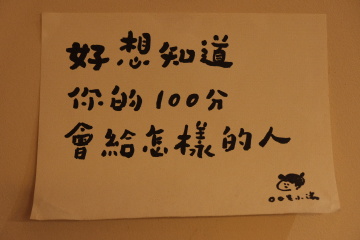 好想知道
你的100分
會給怎樣的人